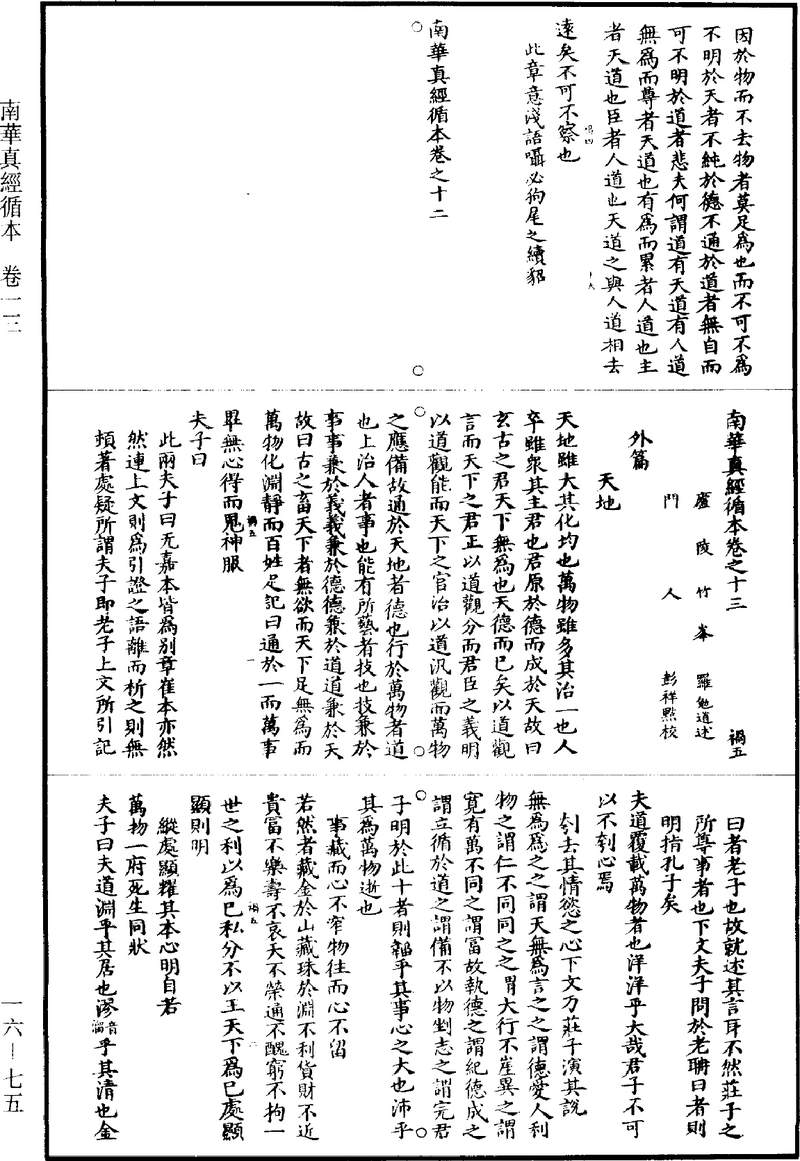 南華真經循本　卷一二
因於物而不去物者莫足為也而不可不為
不明於天者不純於德不通於道者無自而
可不明於道者悲夫何謂道有天道有人道
無為而尊者天道也有為而累者人道也主
者天道也臣者人道也天道之與人道相去
遠矣不可不察也
此章意淺語囁必狗尾之續貂
南華真經循本卷之十二
南華真經循本卷之十三　禍五
廬陵竹峯　羅勉道述
門人　彭祥點校
外篇
天地
天地雖大其化均也萬物雖多其治一也人
卒雖衆其主君也君原於德而成於天故曰
玄古之君天下無為也天德而已矣以道觀
言而天下之君正以道觀分而君臣之義明
以道觀能而天下之官治以道汎觀而萬物
之應備故通於天地者德也行於萬物者道
也上治人者事也能有所藝者技也技兼於
事事兼於義義兼於德德兼於道道兼於天
故曰古之畜天下者無欲而天下足無為而
萬物化淵靜而百姓足記曰通於一而萬事
畢無心得而鬼神服
夫子曰
此兩夫子曰无嘉本皆為别章崔本亦然
然連上文則為引證之語離而析之則無
頓著處疑所謂夫子即老子上文所引記
曰者老子也故就述其言耳不然莊子之
所尊事者也下文夫子問於老聃曰者則
明指孔子矣
夫道覆載萬物者也洋洋乎大哉君子不可
以不刳心焉
刳去其情慾之心下文乃莊子演其說
無為為之之謂天無為言之之謂德愛人利
物之謂仁不同同之之謂大行不崖異之謂
寬有萬不同之謂富故執德之謂紀德成之
謂立循於道之謂備不以物剉志之謂完君
子明於此十者則韜乎其事心之大也沛乎
其為萬物逝也
事藏而心不窄物往而心不留
若然者藏金於山藏珠於淵不利貨財不近
貴富不樂壽不哀夭不榮通不醜窮不拘一
世之利以為已私分不以王天下為已處顯
顯則明
縱處顯耀其本心明自若
萬物一府死生同狀
夫子曰夫道淵乎其居也漻音溜乎其清也金
一六—七五